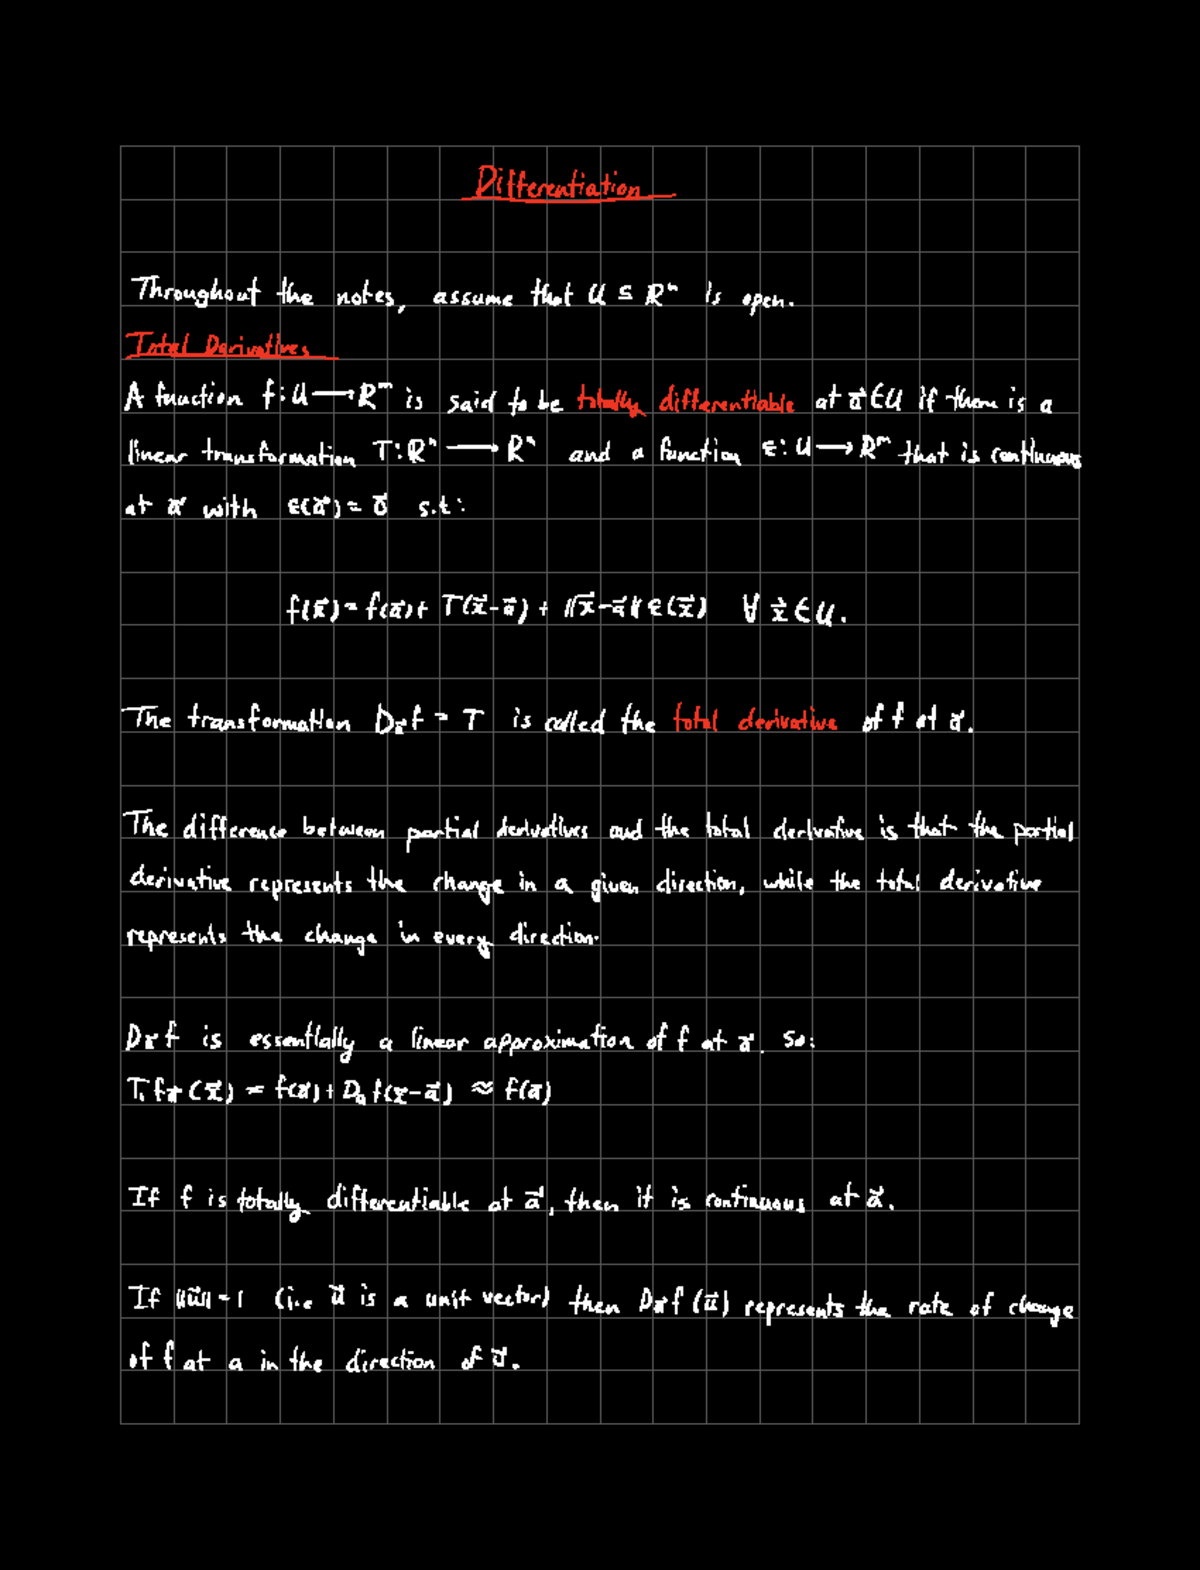 Differentiation
Throughout the notes, assume that U ⊆ ℝⁿ is open.
Total Derivatives
A function f: U ⟶ ℝᵐ is said to be totally differentiable at a⃗ ∈ U if there is a
linear transformation T: ℝⁿ ⟶ ℝⁿ and a function ε: U ⟶ ℝᵐ that is continuous
at a⃗ with ε(a⃗) = 0⃗ s.t:
f(x⃗) = f(a⃗) + T(x⃗-a⃗) + ||x⃗-a⃗|| ε(x⃗) ∀ x⃗ ∈ U.
The transformation D_a⃗ f = T is called the total derivative of f at a⃗.
The difference between partial derivatives and the total derivative is that the partial
derivative represents the change in a given direction, while the total derivative
represents the change in every direction.
D_a⃗ f is essentially a linear approximation of f at a⃗. So:
T₁ f_a⃗ (x⃗) = f(a⃗) + D_a f(x-a⃗) ≈ f(a)
If f is totally differentiable at a⃗, then it is continuous at a⃗.
If ||u⃗|| = 1 (i.e u⃗ is a unit vector) then D_a⃗ f(u⃗) represents the rate of change
of f at a in the direction of u⃗.